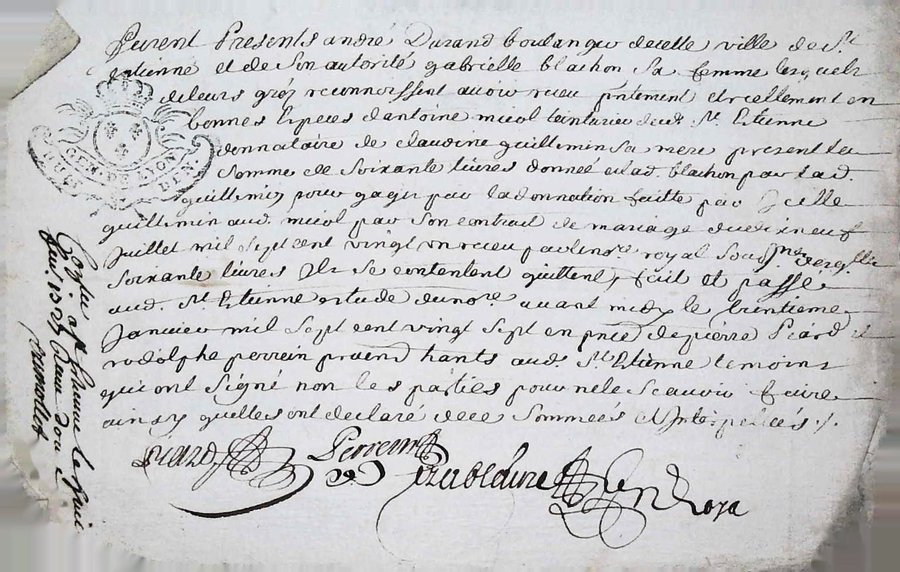 furent Presents andré Durand boulanger de cette ville de St
Estienne et de son autorité gabrielle blachon sa femme lesquels
de leurs gréz reconnoissent avoir receu pntement et reellement en
bonnes Especes d'antoine micol teinturier dud. St. Etienne
donnataire de claudine guillemin sa mere present la
somme de soixante livres donnée a lad. blachon par lad.
guillemin pour gager par la donnation faitte par Icelle
guillemin aud. micol par son contrat de mariage du dix neuf
Juillet mil sept cent vingt un receu par le nore. royal sousne. desq.lles
soixante livres Ils se contentent quittent, fait et passé
aud. St. Etienne estude du nore avant midy le trentieme
Janvier mil sept cent vingt sept en pnce de pierre picard et
rodolphe perrein praend hants aud. St. Etienne temoins
qui ont signé non les parties pour ne le sçavoir faire
ainsy quelles ont declaré de ce sommeés et Interpellées ./.
picard Perrein
Roya
GEN. DE LYON
Etienne le huit
fev. 1727